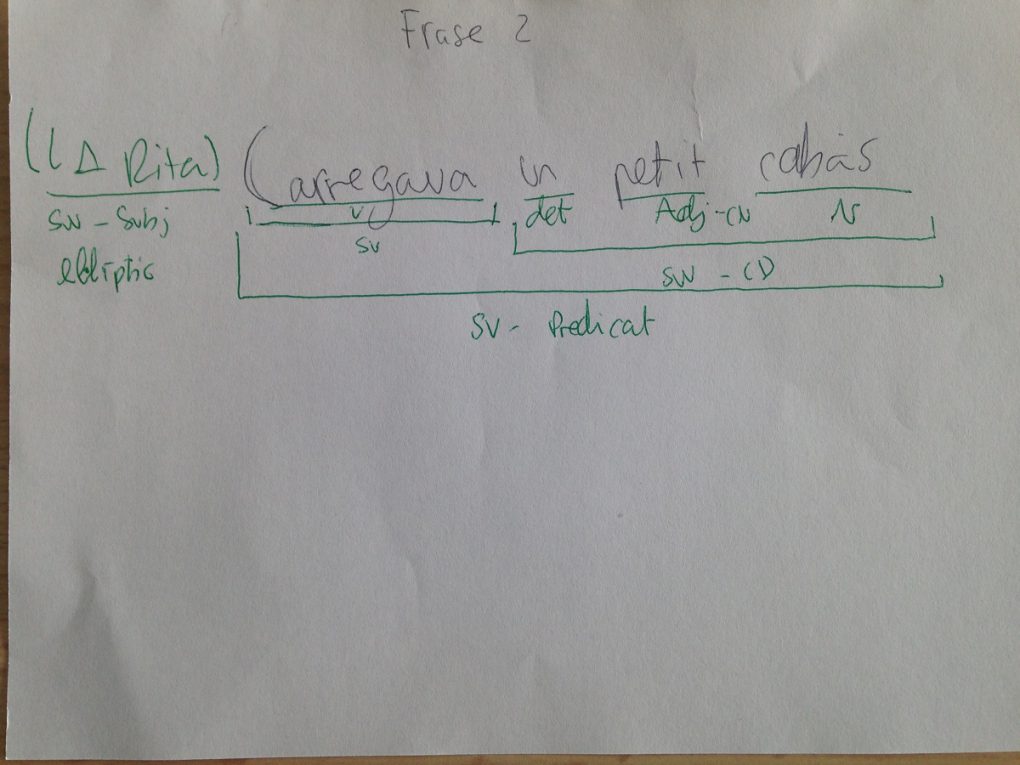 Frase 2
(LA Rita) Carregava un petit cabàs
SN - Subj V det Adj-CN N
el·líptic SV
SN - CD
SV - Predicat